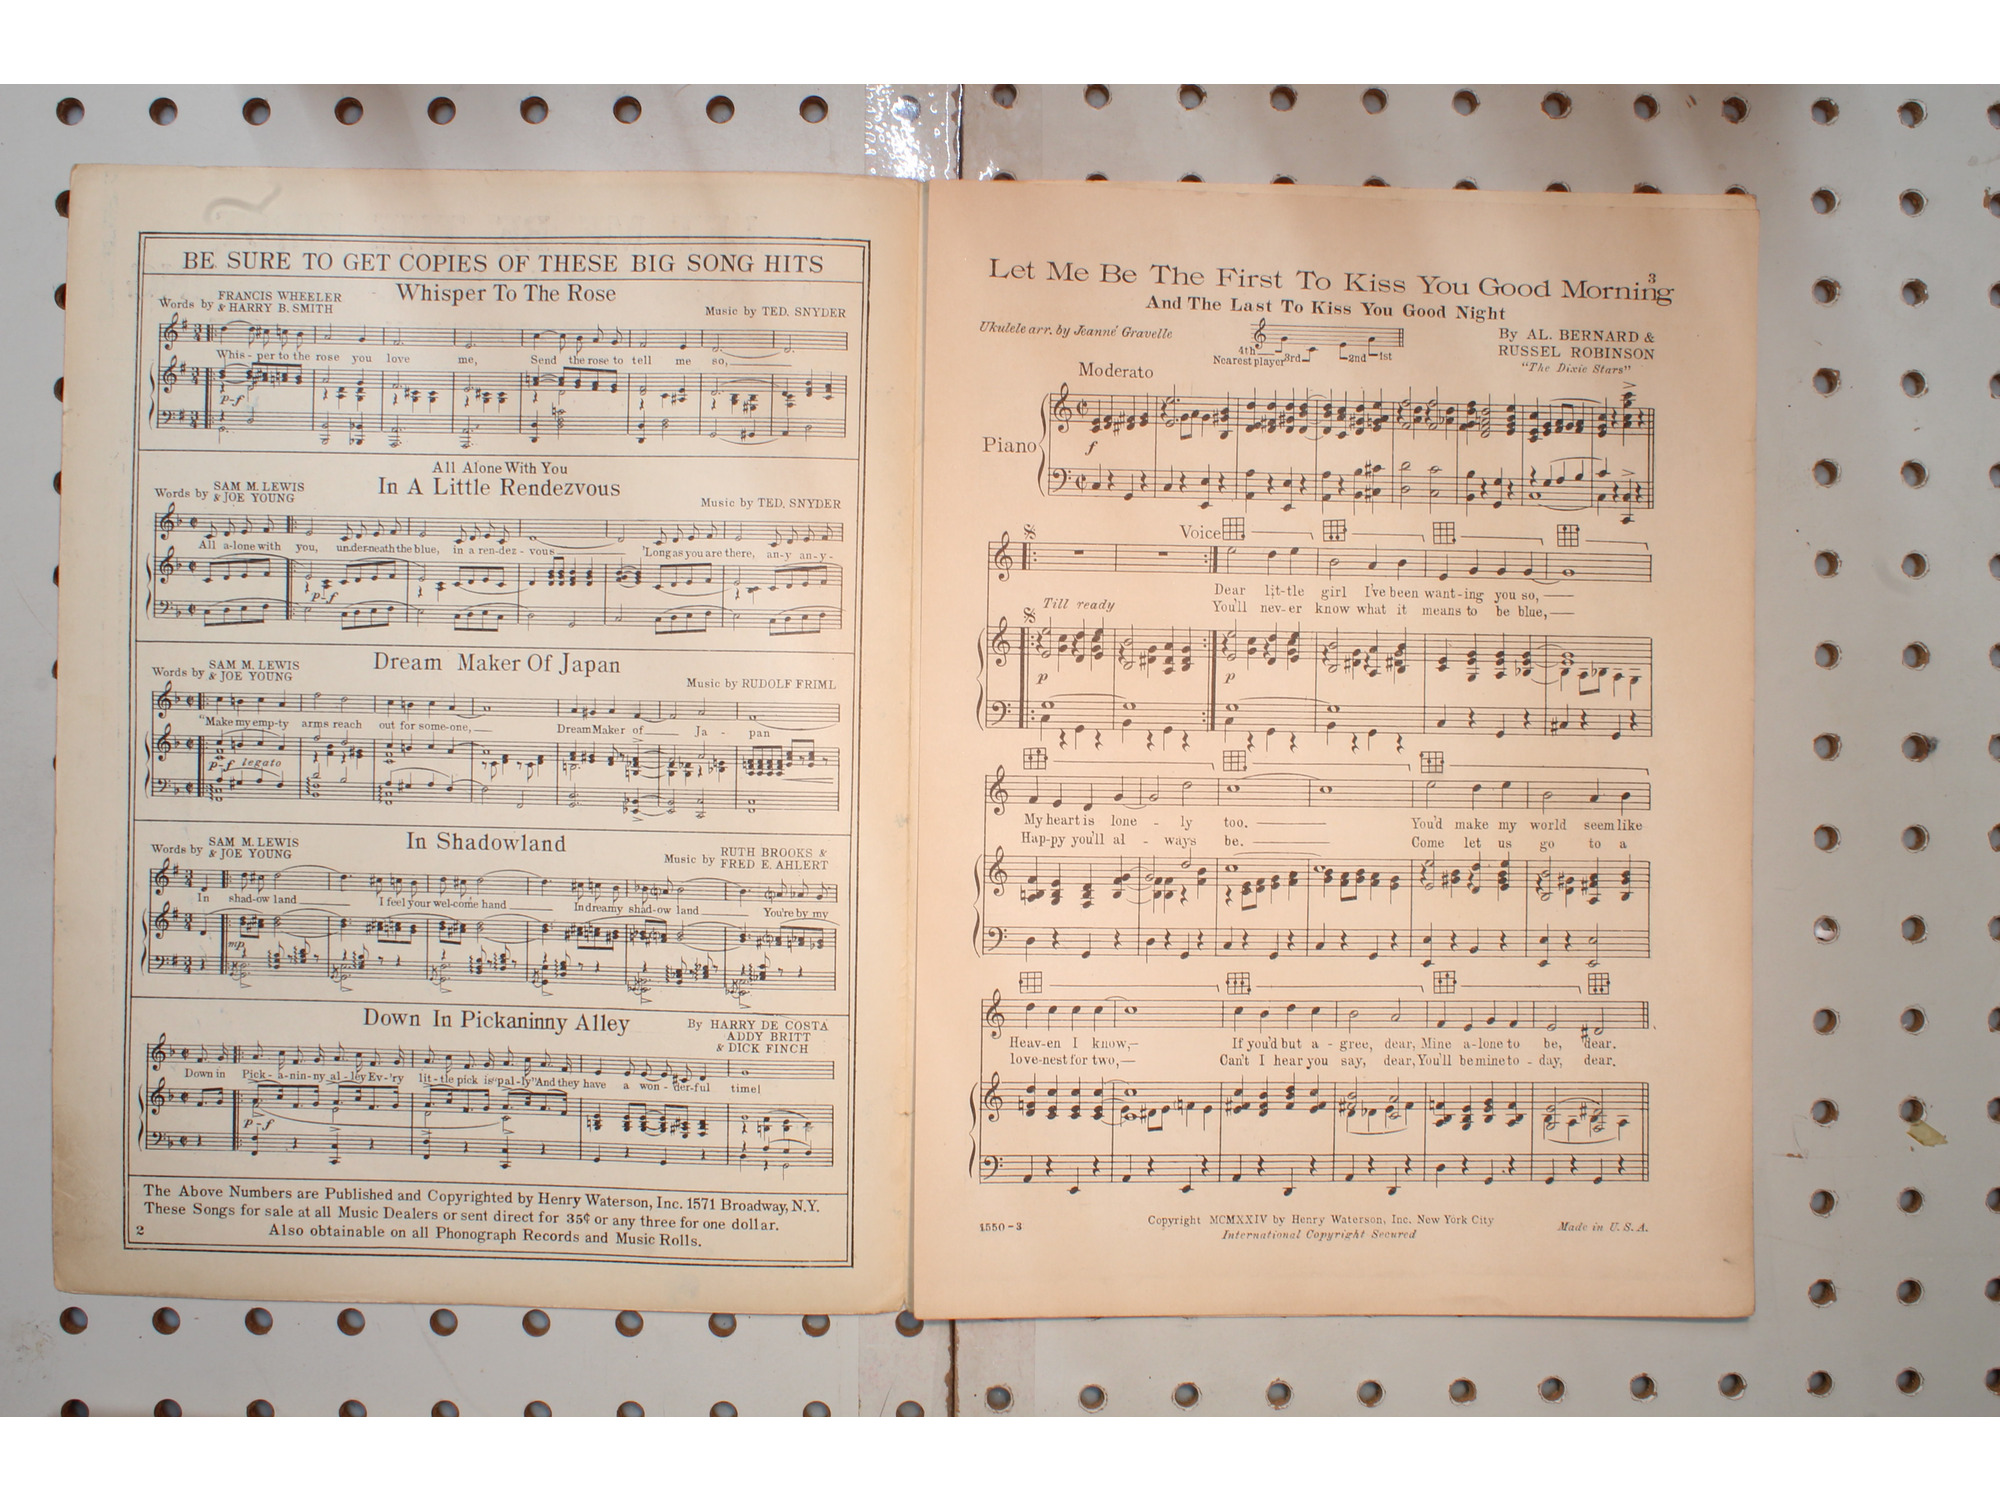 BE SURE TO GET COPIES OF THESE BIG SONG HITS
Whisper To The Rose
Words by FRANCIS WHEELER
& HARRY B. SMITH
Music by TED. SNYDER
Whis-per to the rose you love me, Send the rose to tell me so,
p-f
All Alone With You
In A Little Rendezvous
Words by SAM M. LEWIS
& JOE YOUNG
Music by TED. SNYDER
All a-lone with you, un-der-neath the blue, in a ren-dez-vous 'Long as you are there, an-y an-y-
p-f
Dream Maker Of Japan
Words by SAM M. LEWIS
& JOE YOUNG
Music by RUDOLF FRIML
"Make my emp-ty arms reach out for some-one, Dream Maker of Ja - pan
p-f legato
In Shadowland
Words by SAM M. LEWIS
& JOE YOUNG
Music by RUTH BROOKS &
FRED E. AHLERT
In shad-ow land I feel your wel-come hand In dreamy shad-ow land You're by my
mp
Down In Pickaninny Alley
By HARRY DE COSTA
ADDY BRITT
& DICK FINCH
Down in Pick-a-nin-ny al-ley Ev-'ry lit-tle pick is "pal-ly" And they have a won-der-ful time!
p-f
The Above Numbers are Published and Copyrighted by Henry Waterson, Inc. 1571 Broadway, N.Y.
These Songs for sale at all Music Dealers or sent direct for 35¢ or any three for one dollar.
Also obtainable on all Phonograph Records and Music Rolls.
2
3
Let Me Be The First To Kiss You Good Morning
And The Last To Kiss You Good Night
Ukulele arr. by Jeanné Gravelle
4th 3rd 2nd 1st
Nearest player
By AL. BERNARD &
RUSSEL ROBINSON
"The Dixie Stars"
Moderato
Piano
f
Voice
Dear lit-tle girl I've been want-ing you so,
You'll nev-er know what it means to be blue,
Till ready
p p
My heart is lone - ly too. You'd make my world seem like
Hap-py you'll al - ways be. Come let us go to a
Heav-en I know, If you'd but a-gree, dear, Mine a-lone to be, dear.
love-nest for two, Can't I hear you say, dear, You'll be mine to-day, dear.
1550-3
Copyright MCMXXIV by Henry Waterson, Inc. New York City
International Copyright Secured
Made in U.S.A.